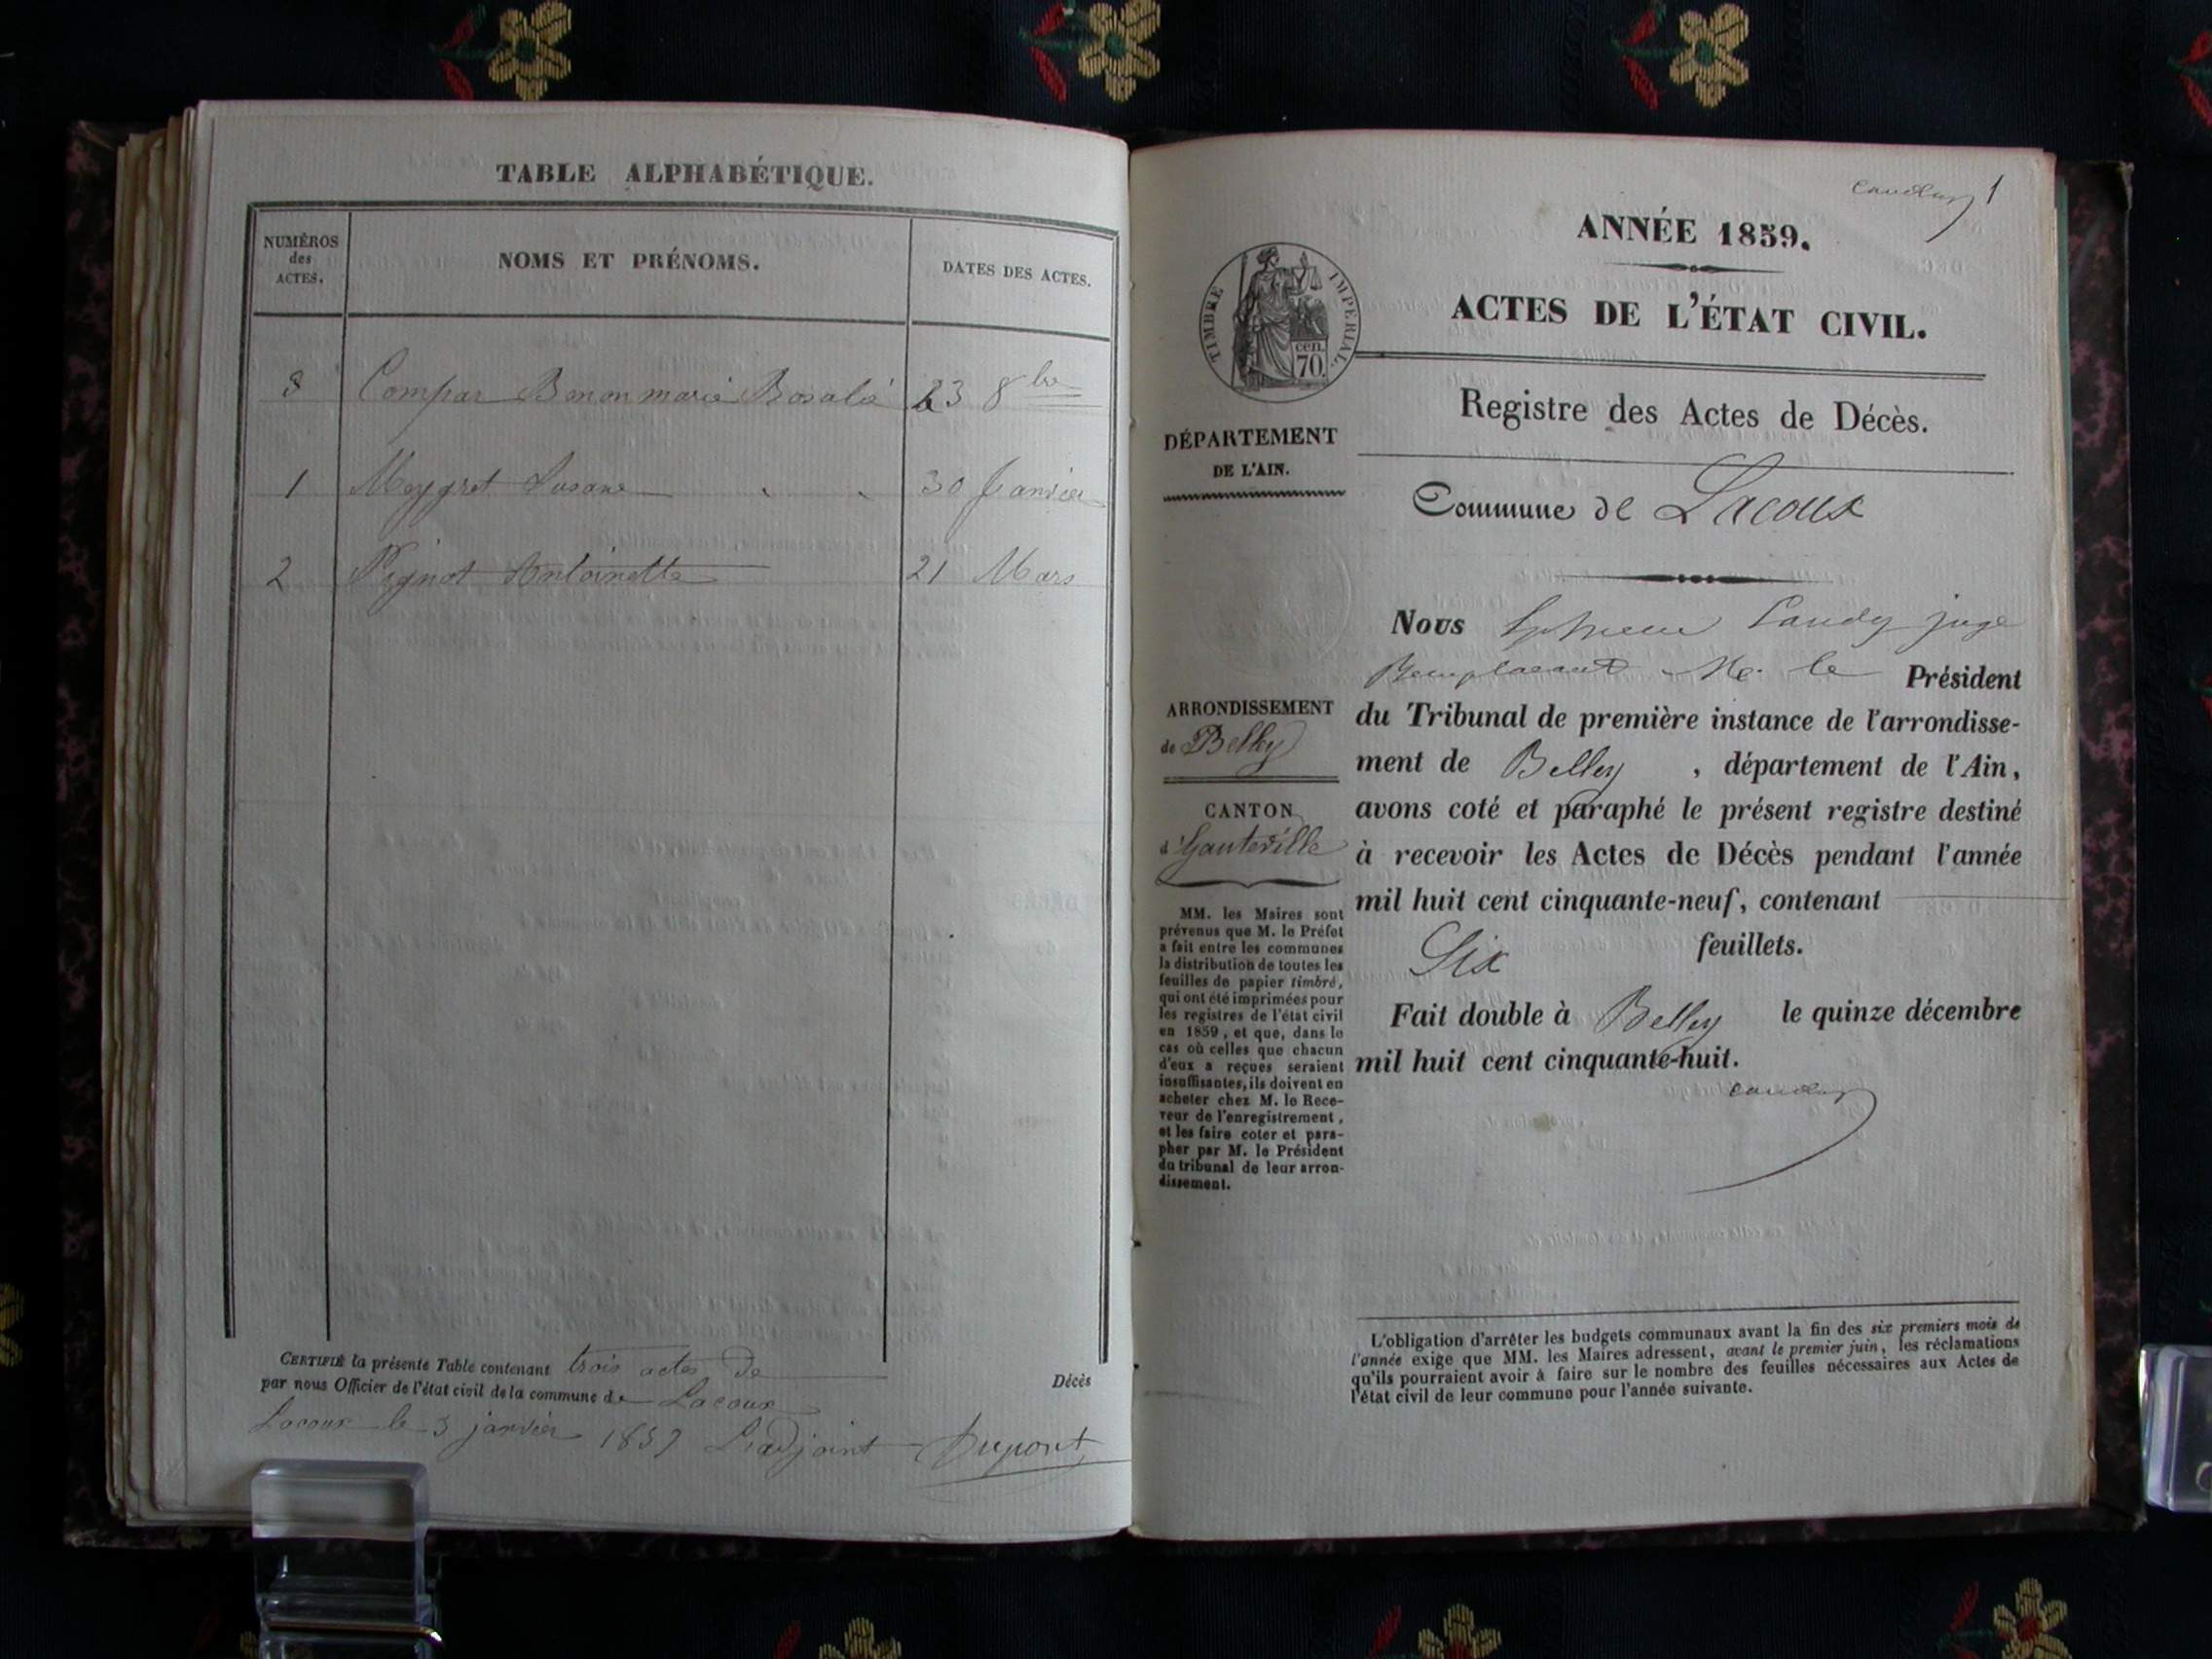 TABLE ALPHABÉTIQUE.
NUMÉROS
des
ACTES.
NOMS ET PRÉNOMS.
DATES DES ACTES.
3 Compar Benon marie Rosalie 23 8bre
1 Meygret Susane 30 Janvier
2 Pignot Antoinette 21 Mars
CERTIFIÉ la présente Table contenant trois actes de Décès
par nous Officier de l'état civil de la commune de Lacoux
Lacoux le 3 janvier 1859 L'adjoint Dupont
1
ANNÉE 1859.
TIMBRE IMPÉRIAL.
cen.
70.
ACTES DE L'ÉTAT CIVIL.
Registre des Actes de Décès.
DÉPARTEMENT
DE L'AIN.
Commune de Lacoux
Nous juge
Remplacant Mr. le Président
du Tribunal de première instance de l'arrondisse-
ment de Belley, département de l'Ain,
avons coté et paraphé le présent registre destiné
à recevoir les Actes de Décès pendant l'année
mil huit cent cinquante-neuf, contenant
Six feuillets.
Fait double à Belley le quinze décembre
mil huit cent cinquante-huit.
ARRONDISSEMENT
de Belley
CANTON
d'Hauteville
MM. les Maires sont
prévenus que M. le Préfet
a fait entre les communes
la distribution de toutes les
feuilles de papier timbré,
qui ont été imprimées pour
les registres de l'état civil
en 1859, et que, dans le
cas où celles que chacun
d'eux a reçues seraient
insuffisantes, ils doivent en
acheter chez M. le Rece-
veur de l'enregistrement,
et les faire coter et para-
pher par M. le Président
du tribunal de leur arron-
dissement.
L'obligation d'arrêter les budgets communaux avant la fin des six premiers mois de
l'année exige que MM. les Maires adressent, avant le premier juin, les réclamations
qu'ils pourraient avoir à faire sur le nombre des feuilles nécessaires aux Actes de
l'état civil de leur commune pour l'année suivante.